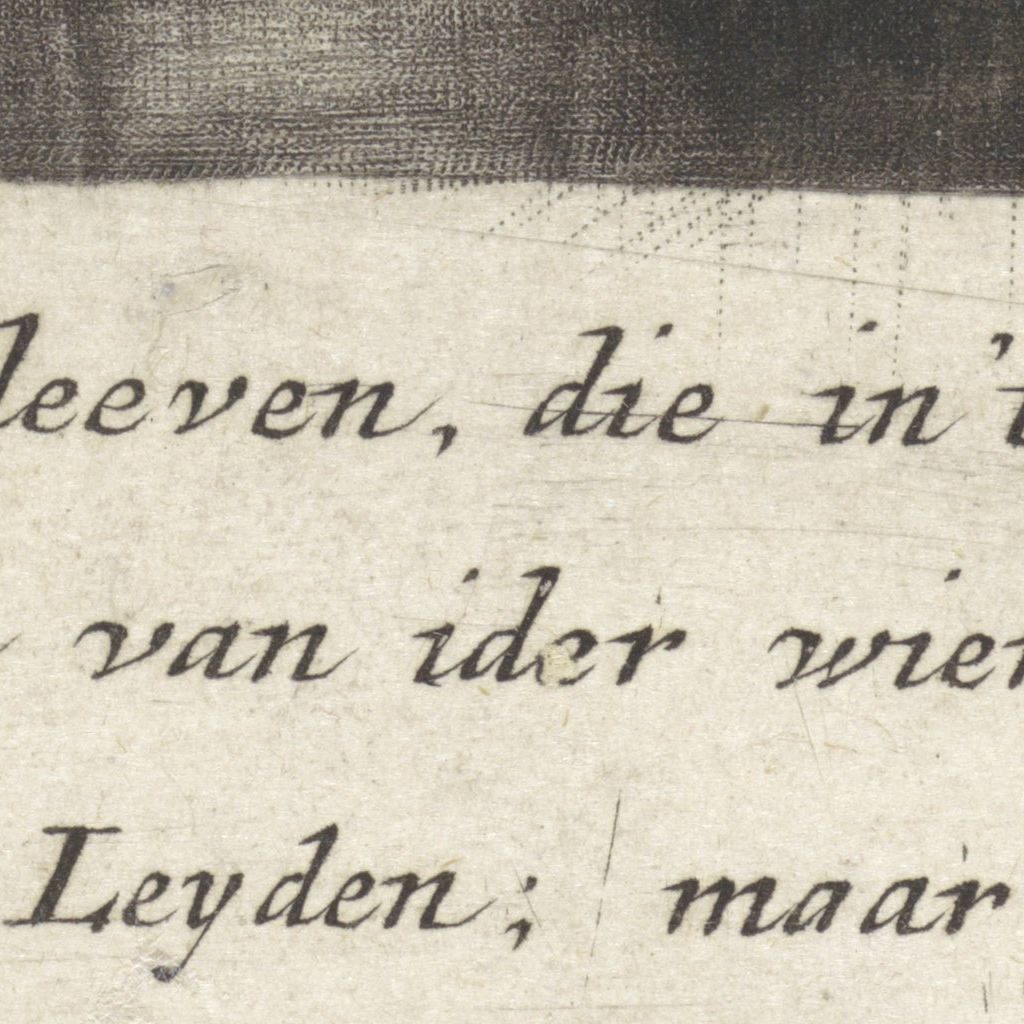 leeven, die in 't
van ider wier
Leyden; maar